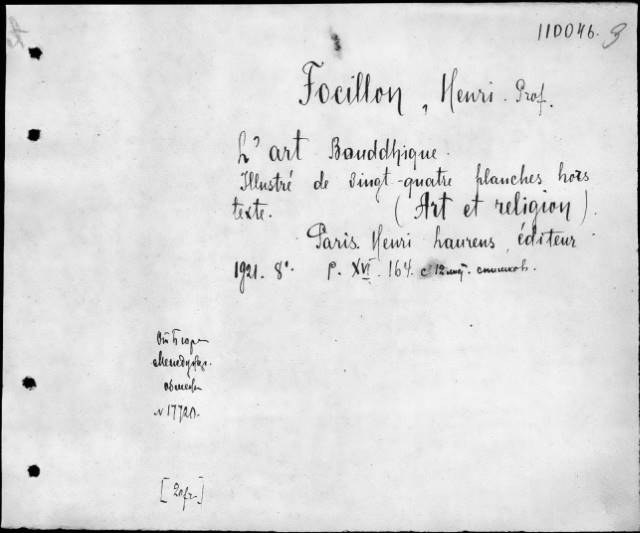 110046.
Focillon, Henri. Prof.
L'art Bouddhique.
Illustré de vingt-quatre planches hors
texte. (Art et religion).
Paris. Henri Laurens, éditeur
1921. 8°. p. XVI. 164. с 12
От Бюро
обмена
№ 17720.
[20fr.]